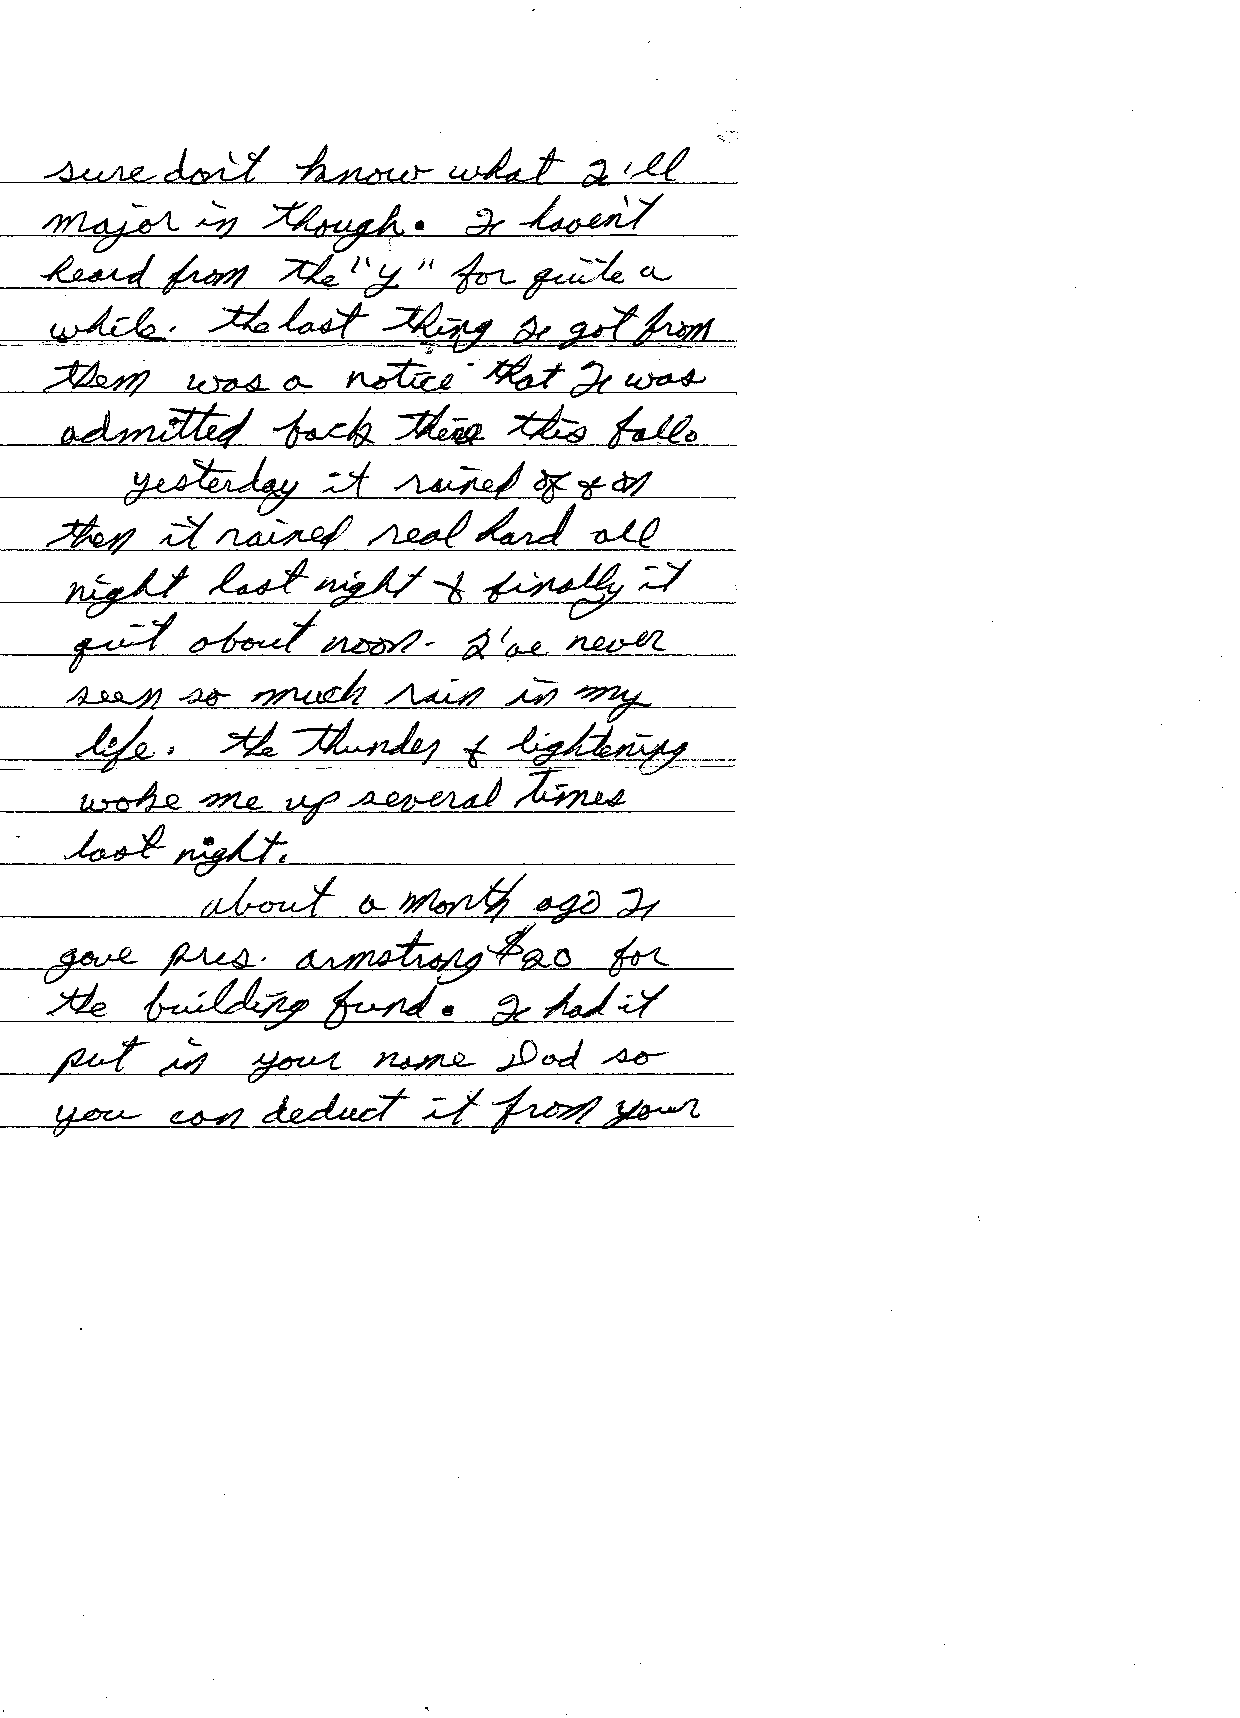 sure don't know what I'll
major in though. I haven't
heard from the "y" for quite a
while. the last thing I got from
them was a notice that I was
admitted back there this fall.
yesterday it rained off & on
then it rained real hard all
night last night & finally it
quit about noon. I've never
seen so much rain in my
life. the thunder & lightening
woke me up several times
last night.
about a month ago I
gave pres. armstrong $20 for
the building fund. I had it
put in your name Dad so
you can deduct it from your